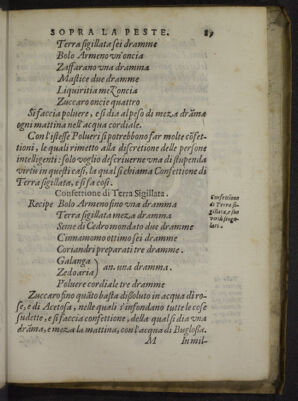 SOPRA LA PESTE. 89
Terra sigillata sei dramme
Bolo Armeno vn'oncia
Zaffarano vna dramma
Mastice due dramme
Liquiritia mez'oncia
Zuccaro oncie quattro
Si faccia poluere, e si dia al peso di meza drāma
ogni mattina nell'acqua cordiale.
Con l'istesse Polueri si potrebbono far molte cōfet-
tioni, le quali rimetto alla discretione delle persone
intelligenti: solo voglio descriuerne vna di stupenda
virtù in questi casi, la qual si chiama Confettione di
Terra sigillata, e si fa così.
Confettione di Terra Sigillata.
Confettione
di Terra si-
gillata, e sua
Recipe Bolo Armeno fino vna dramma
Terra sigillata meza dramma
Seme di Cedro mondato due dramme
Cinnamomo ottimo sei dramme
Coriandri preparati tre dramme.
Galanga
Zedoaria } an. vna dramma.
Poluere cordiale tre dramme
Zuccaro fino quāto basta dissoluto in acqua di ro-
se, e di Acetosa, nelle quali s'infondano tutte le cose
sudette, e si faccia confettione, della qual si dia vna
drāma, e meza la mattina, con l'acqua di Buglossa.
M In mil-